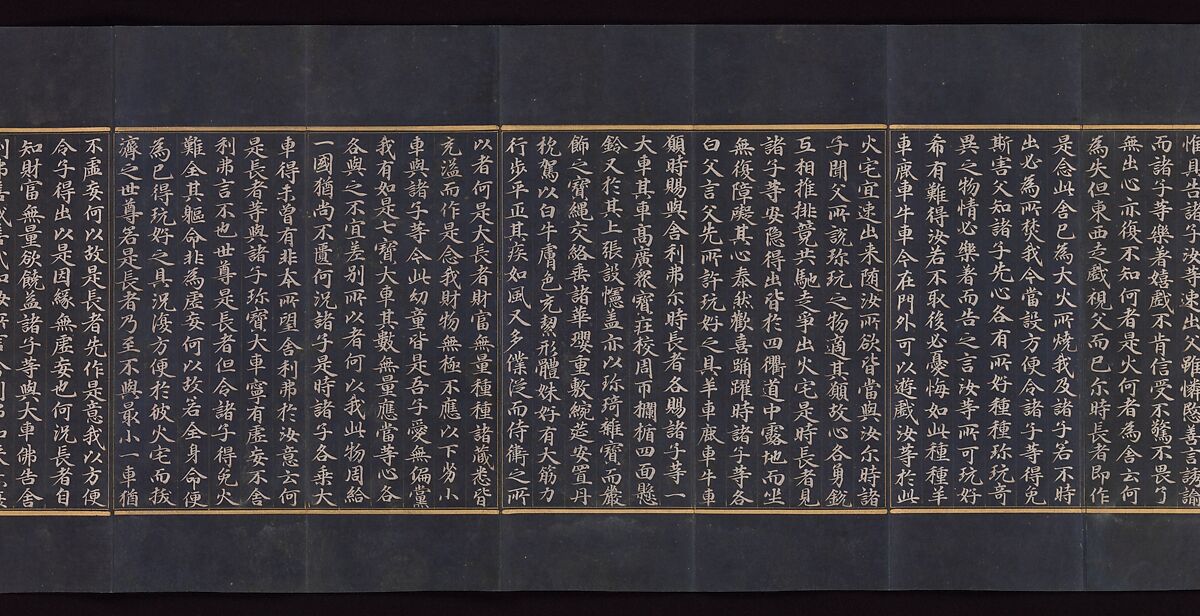 而諸子等樂著嬉戲不肯信受不驚不畏了
無出心亦復不知何者是火何者為舍云何
為失但東西走戲視父而已尒時長者即作
是念此舍已為大火所燒我及諸子若不時
出必為所焚我今當設方便令諸子等得免
斯害父知諸子先心各有所好種種珎玩奇
異之物情必樂著而告之言汝等所可玩好
希有難得汝若不取後必憂悔如此種種羊
車鹿車牛車今在門外可以遊戲汝等於此
火宅宜速出来随汝所欲皆當與汝尒時諸
子聞父所說珎玩之物適其願故心各勇銳
互相推排競共馳走爭出火宅是時長者見
諸子等安隱得出皆於四衢道中露地而坐
無復障礙其心泰然歡喜踊躍時諸子等各
白父言父先所許玩好之具羊車鹿車牛車
願時賜與舍利弗尒時長者各賜諸子等一
大車其車高廣衆寶莊校周帀欄楯四面懸
鈴又於其上張設幰蓋亦以珎琦雜寶而嚴
飾之寶繩交絡垂諸華瓔重敷綩莚安置丹
枕駕以白牛膚色充潔形體姝好有大筋力
行步平正其疾如風又多僕從而侍衛之所
以者何是大長者財富無量種種諸藏悉皆
充溢而作是念我財物無極不應以下劣小
車與諸子等今此幼童皆是吾子愛無偏黨
我有如是七寶大車其數無量應當等心各
各與之不宜差別所以者何以我此物周給
一國猶尚不匱何況諸子是時諸子各乘大
車得未曾有非本所望舍利弗於汝意云何
是長者等與諸子珎寶大車寧有虛妄不舍
利弗言不也世尊是長者但令諸子得免火
難全其軀命非為虛妄何以故若全身命便
為已得玩好之具況復方便於彼火宅而拔
濟之世尊若是長者乃至不與最小一車猶
不虛妄何以故是長者先作是意我以方便
令子得出以是因緣無虛妄也何況長者自
知財富無量欲饒益諸子等與大車佛告舍